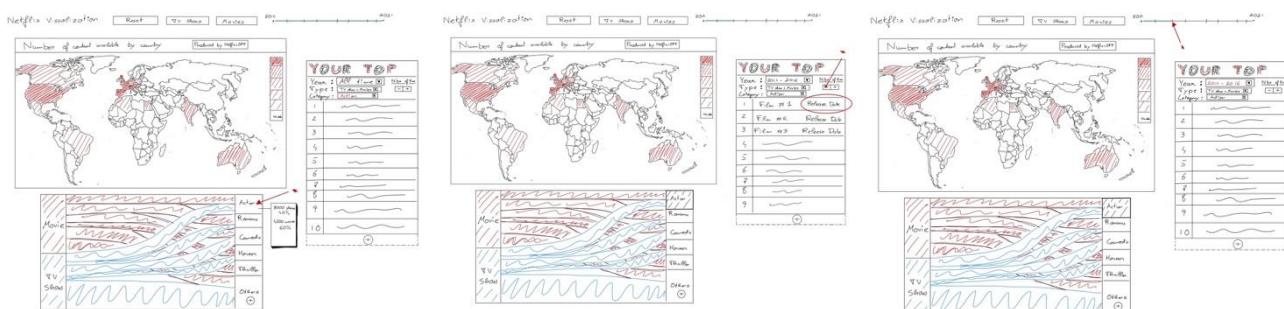 Netflix Visualization Reset TV Shows Movies 2011 2021
Number of content available by country Produced by Netflix
YOUR TOP
Year : All time
Type : TV show + Movies
Category : Action
1
2
3
4
5
6
7
8
9
10
Movie
TV Show
Action
Romance
Comedy
Horror
Thriller
Others
40%
60%
Netflix Visualization Reset TV Shows Movies 2011 2021
Number of content available by country Produced by Netflix
YOUR TOP
Year : 2011 - 2016
Type : TV show + Movies
Category : Action
1 Film #1 Release Date
2 Film #2 Release Date
3 Film #3 Release Date
4
5
6
7
8
9
Movie
TV Show
Action
Romance
Comedy
Horror
Thriller
Others
Netflix Visualization Reset TV Shows Movies 2011 2021
Number of content available by country Produced by Netflix
YOUR TOP
Year : 2011 - 2016
Type : TV show + Movies
Category : Action
1
2
3
4
5
6
7
8
9
10
Movie
TV Show
Action
Romance
Comedy
Horror
Thriller
Others